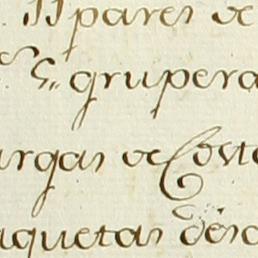 11 pares de
5,, grupera
argas de Costa
aquetas de